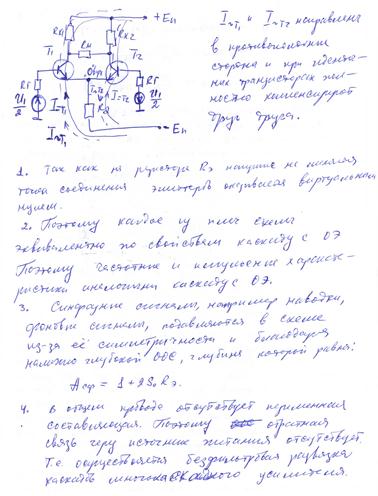 +Eп
Rк1
Rн
Rк2
T1
T2
Rг
Rг
Rэ
-Eп
I~T1 и I~T2 направлены
в противоположные
стороны и при идентич-
ных транзисторах пол-
ностью компенсируют
друг друга.
1. Так как на резисторе Rэ напряжение не меняется
точка соединения эмиттеров оказывается виртуальным
нулем.
2. Поэтому каждое из плеч схемы
эквивалентно по свойствам каскаду с ОЭ
Поэтому частотные и импульсные характе-
ристики аналогичны каскаду с ОЭ.
3. Синфазные сигналы, например наводки,
фоновые сигналы, подавляются в схеме
из-за её симметричности и благодаря
наличию глубокой ООС, глубина которой равна:
Aсф = 1 + 2S0Rэ
4. В общем проводе отсутствует переменная
составляющая. Поэтому обратная
связь через источник питания отсутствует.
Т.е. осуществляется безфильтровая развязка
каскадов многокаскадного усилителя.